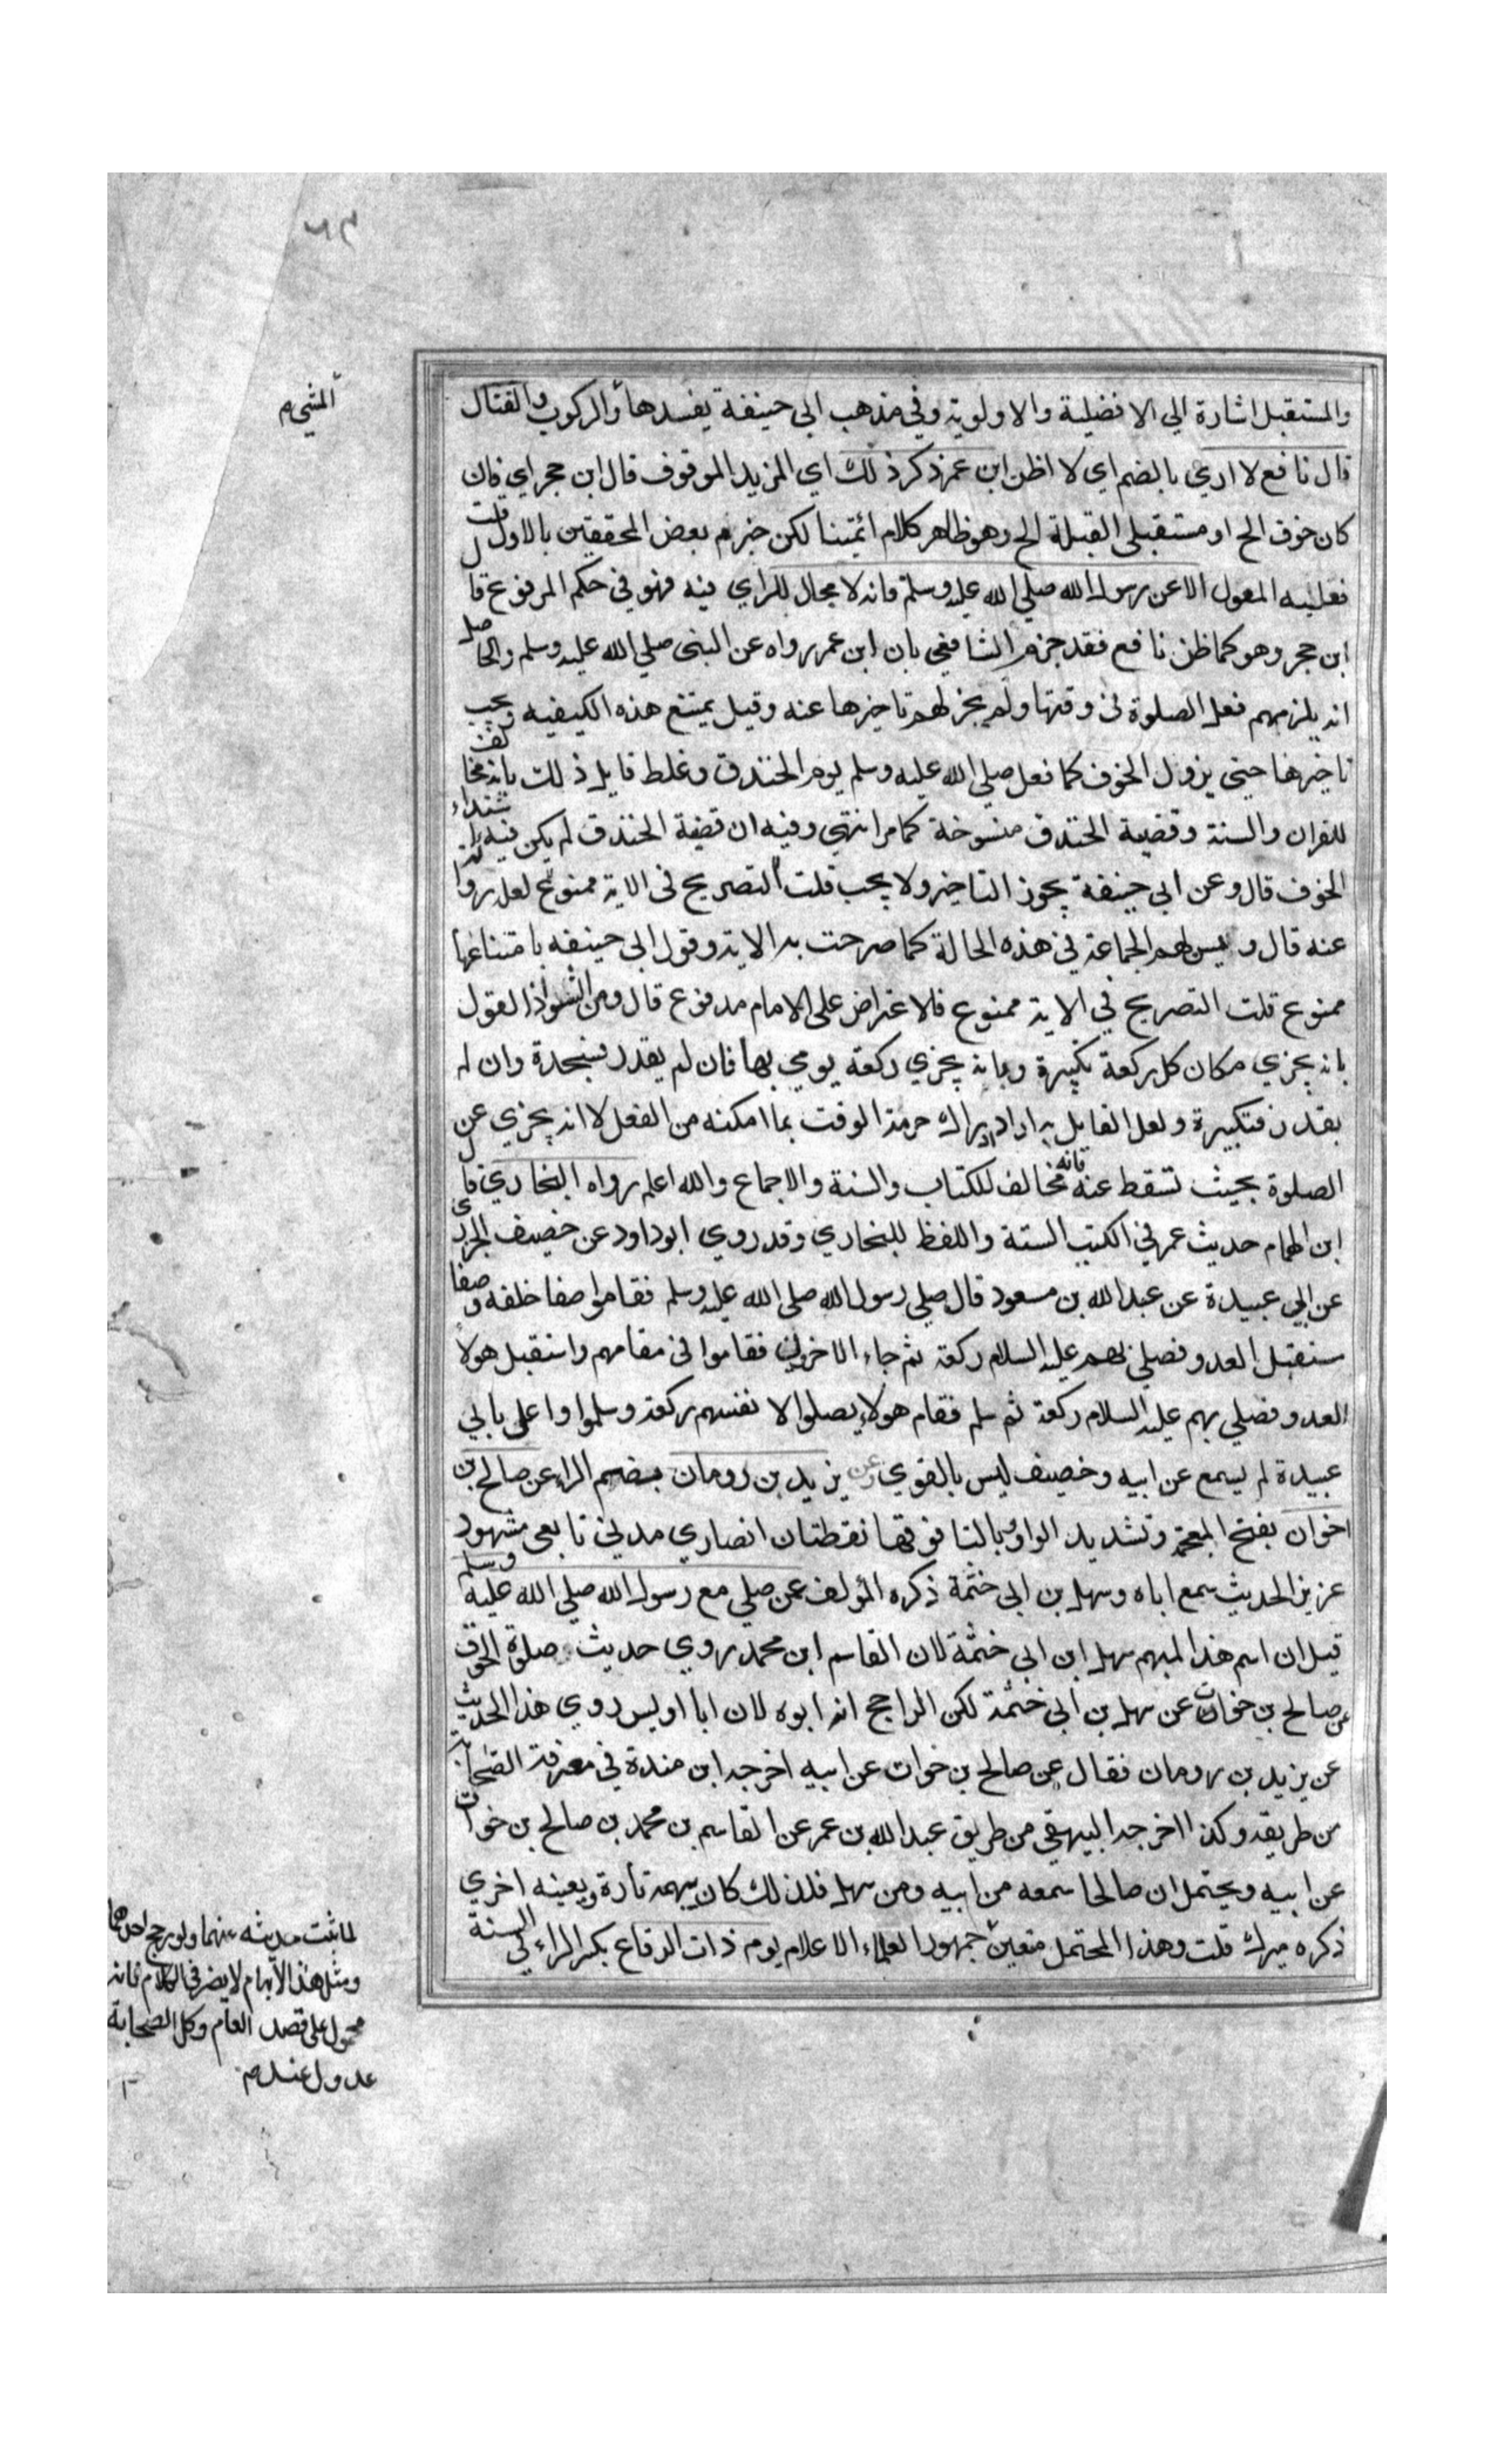 ٦٣
والمستقبل اشارة الي الافضلية والاولوية وفي مذهب ابي حنيفة يفسدها والركوب والقتال
المشي م
قال نافع لا اري بالضم اي لا اظن ابن عمر ذكر ذلك اي المزيد الموقوف قال ابن حجر اي فان
كان خوف الخ او مستقبلي القبلة الخ وهو ظاهر كلام ائمتنا لكن جزم بعض المحققين بالاول قلت
فعليه المعول الا عن رسول الله صلي الله عليه وسلم فانه لا مجال للراي فيه فهو في حكم المرفوع قال
ابن حجر وهو كما ظن نافع فقد جزم الشافعي بان ابن عمر رواه عن النبي صلي الله عليه وسلم والحاصل
انه يلزمهم فعل الصلوة في وقتها ولم يجز لهم تاخيرها عنه وقيل يمتنع هذه الكيفيه ويجب
تاخيرها حتي يزول الخوف كما فعل صلي الله عليه وسلم يوم الخندق وغلط قايل ذلك بانه مخالف
للقران والسنة وقضية الخندق منسوخة كما مر انتهي وفيه ان قضية الخندق لم يكن فيه اشتداد
الخوف قال وعن ابي حنيفة يجوز التاخير ولا يجب قلت التصريح في الاية ممنوع لعل روا
عنه قال وليس لهم الجماعة في هذه الحالة كما صرحت به الاية وقول ابي حنيفه بامتناعها
ممنوع قلت التصريح في الاية ممنوع فالاعتراض علي الامام مدفوع قال ومن الشواذ القول
بانه يجزي مكان كل ركعة تكبيرة وبانه يجزي ركعة يومي بها فان لم يقدر فسجدة وان لم
يقدر فتكبيرة ولعل القايل به اراد ادراك حرمة الوقت بما امكنه من الفعل لا انه يجزي عن
الصلوة بحيث تسقط عنه فانه مخالف للكتاب والسنة والاجماع والله اعلم رواه البخاري قال
ابن الهمام حديث عمر في الكتب الستة واللفظ للبخاري وقد روي ابو داود عن خصيف الجزري
عن ابي عبيدة عن عبد الله بن مسعود قال صلي رسول الله صلي الله عليه وسلم فقاموا صفا خلفه وصفا
مستقبل العدو فصلي بهم عليه السلام ركعة ثم جاء الاخرون فقاموا في مقامهم واستقبل هولاء
العدو فصلي بهم عليه السلام ركعة ثم سلم فقام هولاء يصلوا لا نفسهم ركعة وسلموا واعلى بابي
عبيدة لم يسمع عن ابيه وخصيف ليس بالقوي وعن يزيد بن رومان بضم الراء عن صالح بن
اخوان بفتح المعجمة وتشديد الواو وبالتا فوقها نقطتان انصاري مدني تابعي مشهور
عزيز الحديث سمع اباه وسهل بن ابي خثمة ذكره المؤلف عمن صلي مع رسول الله صلي الله عليه وسلم
قيل ان اسم هذا المبهم سهل ابن ابي خثمة لان القاسم ابن محمد روي حديث صلوة الخوف
عن صالح بن خوات عن سهل بن ابي خثمة لكن الراجح انه ابوه لان ابا اويس روي هذا الحديث
عن يزيد بن رومان فقال عن صالح بن خوات عن ابيه اخرجه ابن مندة في معرفة الصحابة
من طريقه وكذا اخرجه البيهقي من طريق عبد الله بن عمر عن القاسم بن محمد بن صالح بن خوات
عن ابيه ويحتمل ان صالحا سمعه من ابيه ومن سهل فلذلك كان يبهمه تارة ويعينه اخري
ذكره ميرك قلت وهذا المحتمل متعين جمهور العلماء الاعلام يوم ذات الرقاع بكسر الراء في السنة
لما ثبت حديثه عنهما ولو رجح احدهما
ومثل هذا الابهام لا يضر في الكلام فانه
محمول علي قصد العام وكل الصحابة
عدول عندهم